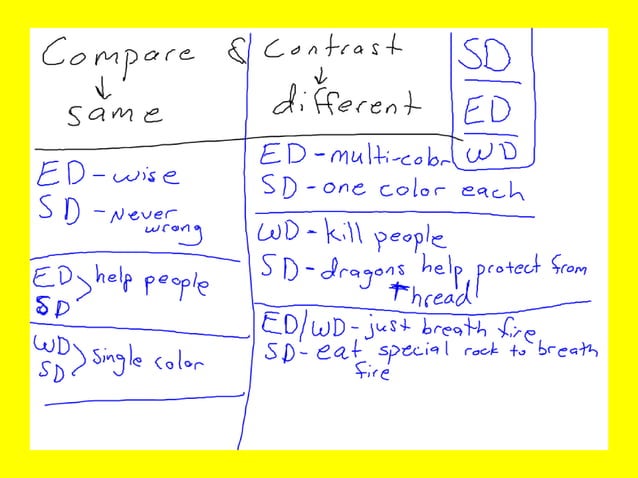 Compare & Contrast
same
different
SD
ED
WD
ED-wise
SD-Never
wrong
ED
SD
help people
WD
SD
single color
ED-multi-color
SD-one color each
WD-kill people
SD-dragons help protect from
Thread
ED/WD-just breath fire
SD-eat special rock to breath
fire